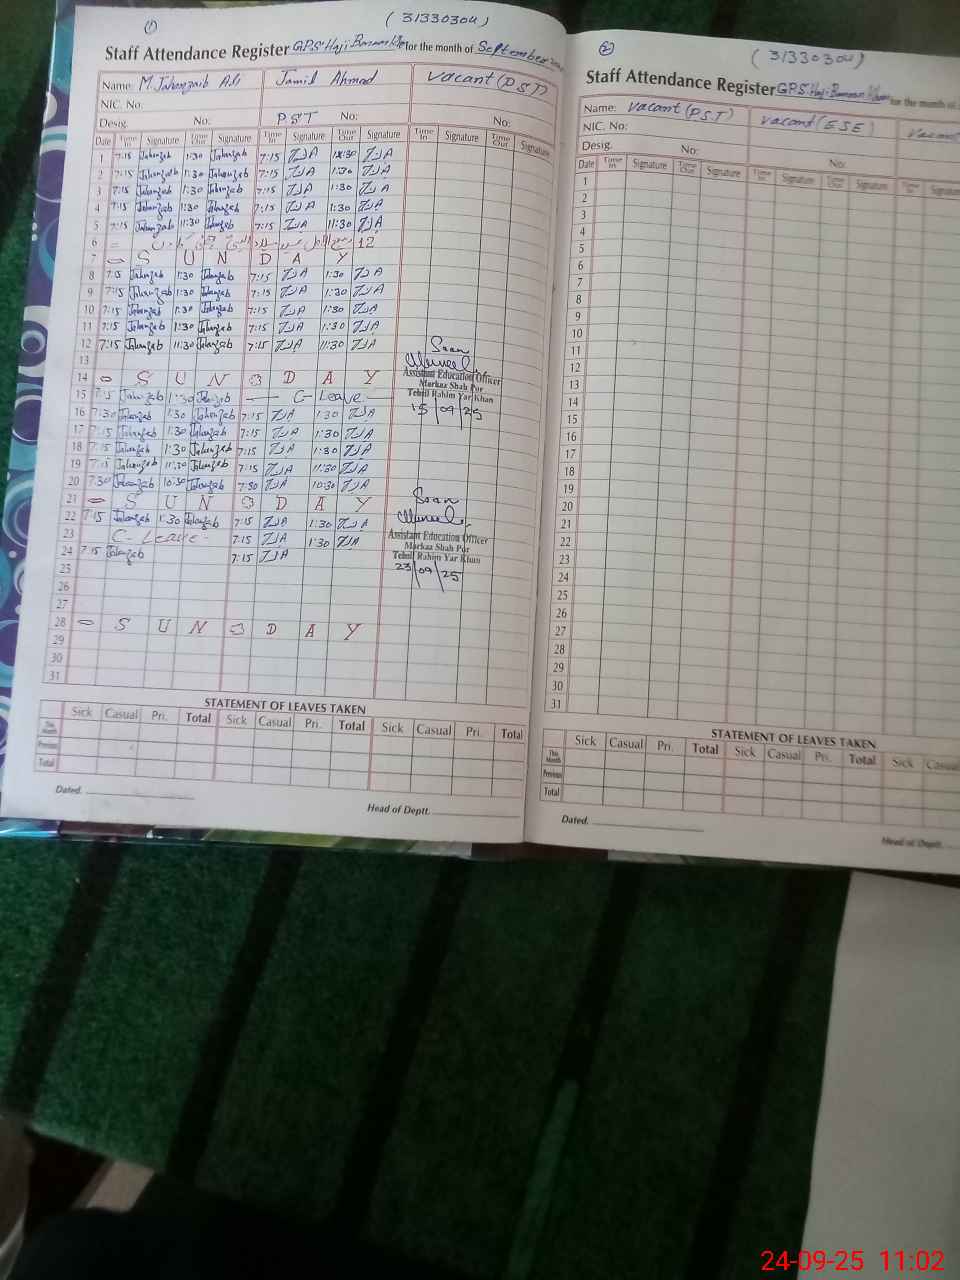 (1)
(31330304)
Staff Attendance Register G.P.S Haji for the month of September
Name: M. Jahanzaib Ali Jamil Ahmad Vacant (P.S.T)
NIC. No:
Desig. No: P.S.T No: No:
Date Time In Signature Time Out Signature Time In Signature Time Out Signature Time In Signature Time Out Signature
1 7:15 Jahanzab 1:30 Jahanzab 7:15 ZJA ZJA
2 7:15 Jahanzab 1:30 Jahanzab 7:15 ZJA 1:30 ZJA
3 7:15 Jahanzab 1:30 Jahanzab 7:15 ZJA 1:30 ZJA
4 7:15 Jahanzab 1:30 Jahanzab 7:15 ZJA 1:30 ZJA
5 7:15 Jahanzab 11:30 Jahanzab 7:15 ZJA 11:30 ZJA
6 12 ربیع الاول
7 S U N D A Y
8 7:15 Jahanzab 1:30 Jahanzab 7:15 ZJA 1:30 ZJA
9 7:15 Jahanzab 1:30 Jahanzab 7:15 ZJA 1:30 ZJA
10 7:15 Jahanzab 1:30 Jahanzab 7:15 ZJA 1:30 ZJA
11 7:15 Jahanzab 1:30 Jahanzab 7:15 ZJA 1:30 ZJA
12 7:15 Jahanzab 11:30 Jahanzab 7:15 ZJA 11:30 ZJA
13
14 S U N D A Y
Assistant Education Officer
Markaz Shah Pur
Tehsil Rahim Yar Khan
15/09/25
15 7:15 Jahanzab 1:30 Jahanzab C- Leave
16 7:30 Jahanzab 1:30 Jahanzab 7:15 ZJA 1:30 ZJA
17 7:15 Jahanzab 1:30 Jahanzab 7:15 ZJA 1:30 ZJA
18 7:15 Jahanzab 1:30 Jahanzab 7:15 ZJA 1:30 ZJA
19 7:15 Jahanzab 11:30 Jahanzab 7:15 ZJA 11:30 ZJA
20 7:30 Jahanzab 10:30 Jahanzab 7:30 ZJA 10:30 ZJA
21 S U N D A Y
22 7:15 Jahanzab 1:30 Jahanzab 7:15 ZJA 1:30 ZJA
23 C- Leave - 7:15 ZJA 1:30 ZJA
24 7:15 Jahanzab 7:15 ZJA
Assistant Education Officer
Markaz Shah Pur
Tehsil Rahim Yar Khan
23/09/25
25
26
27
28 S U N D A Y
29
30
31
STATEMENT OF LEAVES TAKEN
Sick Casual Pri. Total Sick Casual Pri. Total Sick Casual Pri. Total
This Month
Previous
Total
Dated.
Head of Deptt.
(2)
(31330304)
Staff Attendance Register G.P.S Haji for the month of
Name: Vacant (P.S.T) Vacant (E.S.E) Vacant
NIC. No:
Desig. No: No:
Date Time In Signature Time Out Signature Time In Signature Time Out Signature Time In Signature
1
2
3
4
5
6
7
8
9
10
11
12
13
14
15
16
17
18
19
20
21
22
23
24
25
26
27
28
29
30
31
STATEMENT OF LEAVES TAKEN
Sick Casual Pri. Total Sick Casual Pri. Total Sick Casual
This Month
Previous
Total
Dated.
Head of Deptt.
24-09-25 11:02